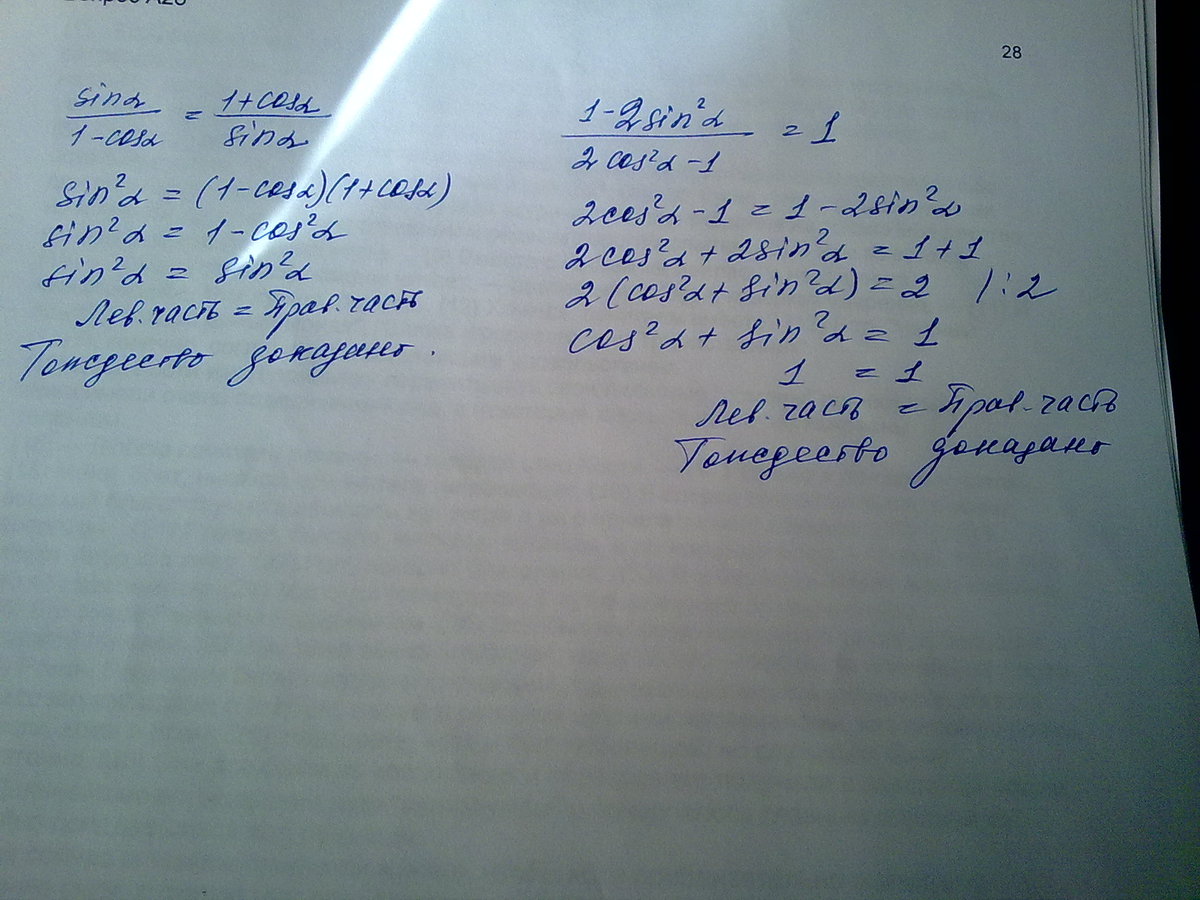 28
sinα / 1-cosα = 1+cosα / sinα
sin²α = (1-cosα)(1+cosα)
sin²α = 1-cos²α
sin²α = sin²α
Лев. часть = Прав. часть
Тождество доказано.
1-2sin²α / 2cos²α-1 = 1
2cos²α-1 = 1-2sin²α
2cos²α+2sin²α = 1+1
2(cos²α+sin²α) = 2 /:2
cos²α+sin²α = 1
1 = 1
Лев. часть = Прав. часть
Тождество доказано